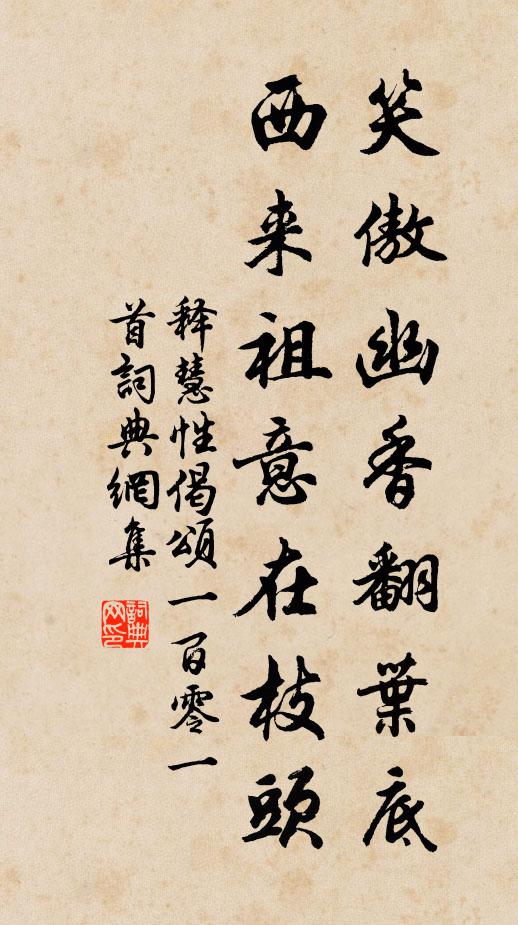 笑傲幽香翻葉底
西来祖意在枝頭
釋慧性偈頌一百零一
首詞典網集
詞典網印